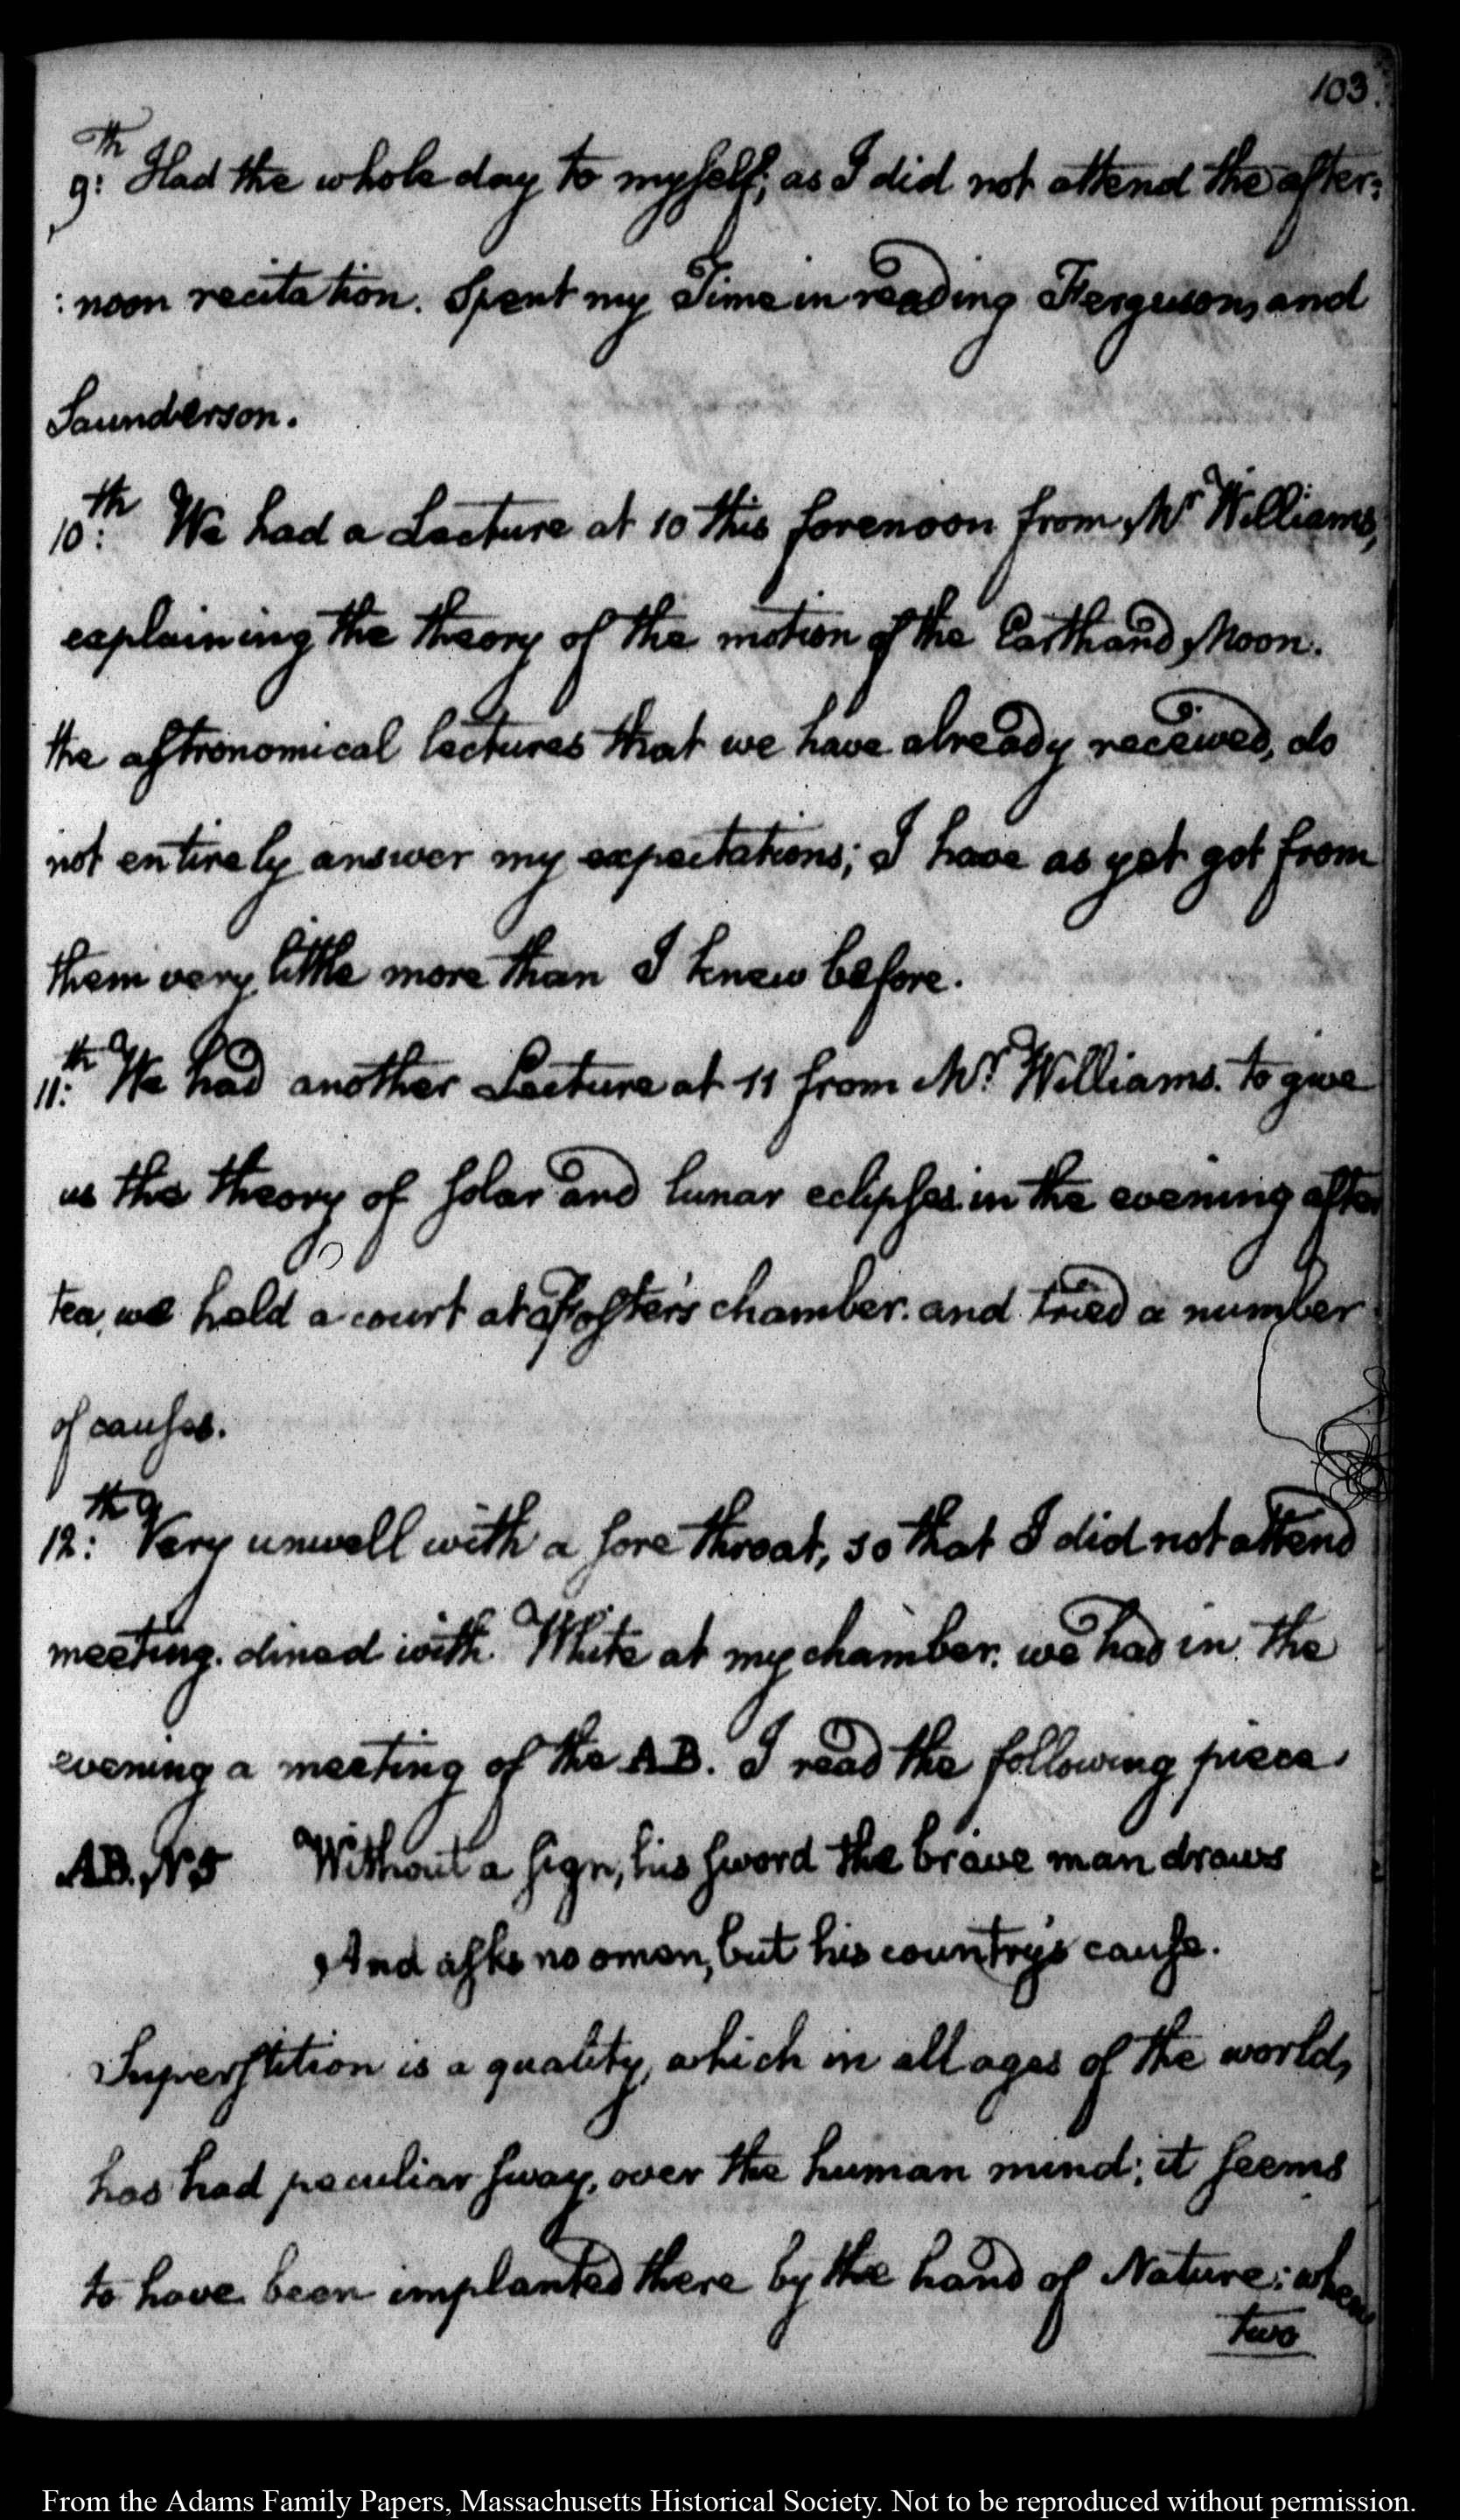 103.
9:th Had the whole day to myself; as I did not attend the after:
:noon recitation. Spent my Time in reading Ferguson, and
Saunderson.
10:th We had a Lecture at 10 this forenoon from Mr Williams,
explaining the theory of the motion of the Earth and Moon.
the aſtronomical lectures that we have already received, do
not entirely answer my expectations; I have as yet got from
them very little more than I knew before.
11:th We had another Lecture at 11 from Mr Williams. to give
us the theory of ſolar and lunar eclipſes. in the evening after
tea, we held a court at Foſter's chamber. and tried a number
of cauſes.
12:th Very unwell with a ſore throat, so that I did not attend
meeting. dined with White at my chamber. we had in the
evening a meeting of the AB. I read the following piece.
AB. N 5 Without a ſign, his ſword the brave man draws
And aſks no omen, but his country's cauſe.
Superſtition is a quality, which in all ages of the world,
has had peculiar ſway, over the human mind; it ſeems
to have been implanted there by the hand of Nature: when
two
From the Adams Family Papers, Massachusetts Historical Society. Not to be reproduced without permission.